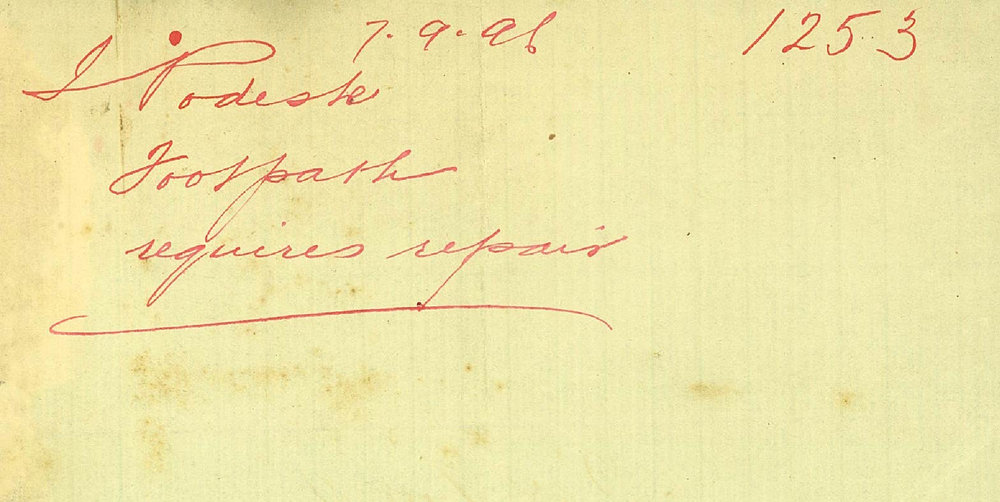 7.9.96 1253
J Podesta
Footpath
requires repair